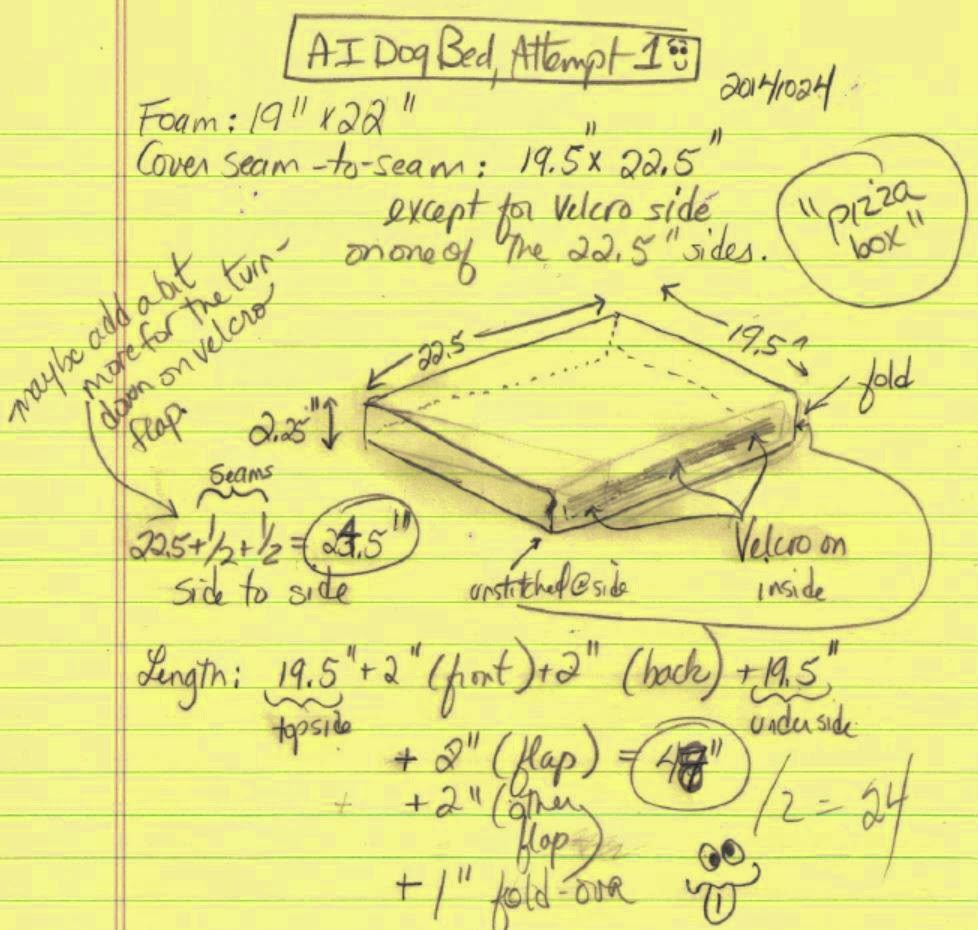 AI Dog Bed, Attempt 1
20141024
Foam: 19" x 22"
Cover seam-to-seam: 19.5" x 22.5"
except for Velcro side
on one of the 22.5" sides.
"pizza
box"
maybe add a bit
more for the turn-
down on velcro
flap
22.5
19.5"
fold
2.25"
seams
22.5+1/2+1/2= 24.5"
side to side
unstitched@side
Velcro on
inside
Length: 19.5"+2" (front)+2" (back) +19.5"
topside
underside
+ 2" (flap) = 48"
/2 = 24
+ 2" (other
flap)
+ 1" fold-over